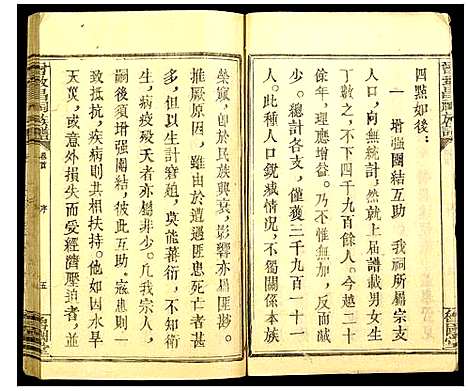 四點如後：
一　增强團結互助　我祠所屬宗支
人口，向無統計，然就上屆譜載男女生
丁數之，不下四千九百餘人。今越二十
餘年，理應增益。乃不惟無增，反而減
此。總計各支，僅獲三千九百一十一
人。此種人口銳減情况，不獨關係本族
榮寵，卽於民族興衰，影響亦屬匪尠。
推厥原因，雖由於遭遇匪患死亡者甚
多，但以生計窘廹，莫能蕃衍，不一而
生，病疫殁天者亦屬非少。凢我宗人，
嗣後須增强團結，彼此互助，寇患則一
致抵抗，疾病則共相扶持。他如因水旱
天灾，或意外損失而受經濟壓迫者，並
序
五